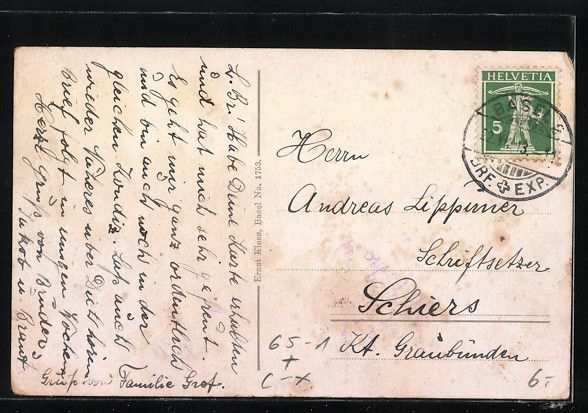 L. Br.! Habe Deine Karte erhalten
und hat mich sehr gefreut.
Es geht mir ganz ordentlich
und bin auch noch in der
gleichen Kondiz. Laß auch
wieder Näheres über Dich hören
Brief folgt in einigen Wochen
Herzl. Gruß von Bruder
Jakob u.
Gruß von Familie Graf.
Ernst Kloos, Basel No. 1753.
HELVETIA
5
BASEL
BRF. EXP.
Herrn
Andreas Lippuner
Schriftsetzer
Schiers
Kt. Graubünden
65-1
+
C-X
6.-